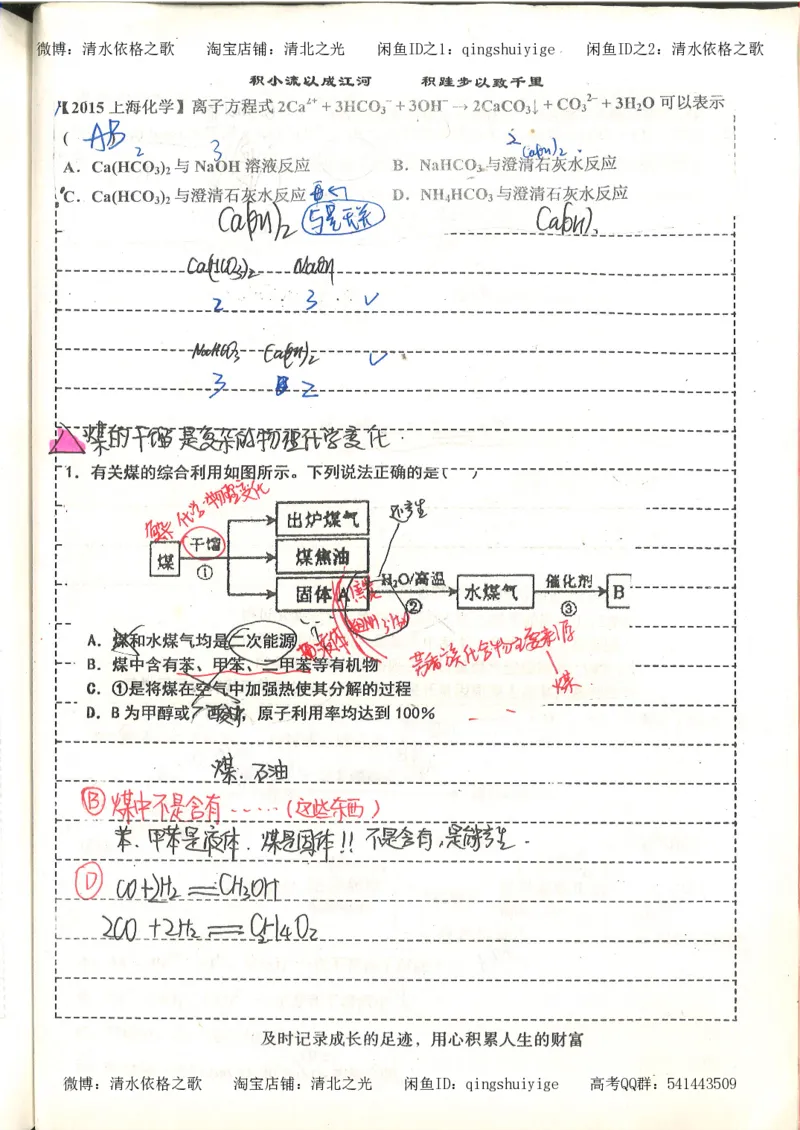 微博：清水依格之歌 淘宝店铺：清北之光 闲鱼ID之1：qingshuiyige 闲鱼ID之2：清水依格之歌
积小流以成江河 积跬步以致千里
【2015 上海化学】离子方程式 2Ca²⁺ + 3HCO₃⁻ + 3OH⁻ → 2CaCO₃↓ + CO₃²⁻ + 3H₂O 可以表示
( AB
2 3 2 Ca(OH)₂
A．Ca(HCO₃)₂ 与 NaOH 溶液反应 B．NaHCO₃ 与澄清石灰水反应
C．Ca(HCO₃)₂ 与澄清石灰水反应 D．NH₄HCO₃ 与澄清石灰水反应
Ca(OH)₂ 与量无关 Ca(OH)₂
Ca(HCO₃)₂ NaOH
2 3 ✓
NaHCO₃ Ca(OH)₂ ✓
3 2
煤的干馏是复杂的物理化学变化
1．有关煤的综合利用如图所示。下列说法正确的是( )
化学物理变化
出炉煤气
煤 干馏 ① 煤焦油
固体A H₂O/高温 ② 水煤气 催化剂 ③ B
A．煤和水煤气均是二次能源
B．煤中含有苯、甲苯、二甲苯等有机物
芳香族化合物主要来源
煤
C．①是将煤在空气中加强热使其分解的过程
D．B 为甲醇或乙酸时，原子利用率均达到 100%
煤．石油
Ⓑ 煤中不是含有……（这些东西）
苯．甲苯是液体．煤是固体!! 不是含有，是能产生．
Ⓓ CO+2H₂ == CH₃OH
2CO +2H₂ == C₂H₄O₂
及时记录成长的足迹，用心积累人生的财富
微博：清水依格之歌 淘宝店铺：清北之光 闲鱼ID：qingshuiyige 高考QQ群：541443509